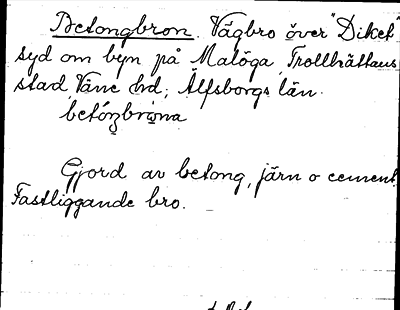 Betongbron. Vägbro över "Diket"
syd om byn på Malöga, Trollhättans
stad Väne hd; Älfsborgs län.
betóŋbrana
Gjord av betong, järn o cement.
Fastliggande bro.